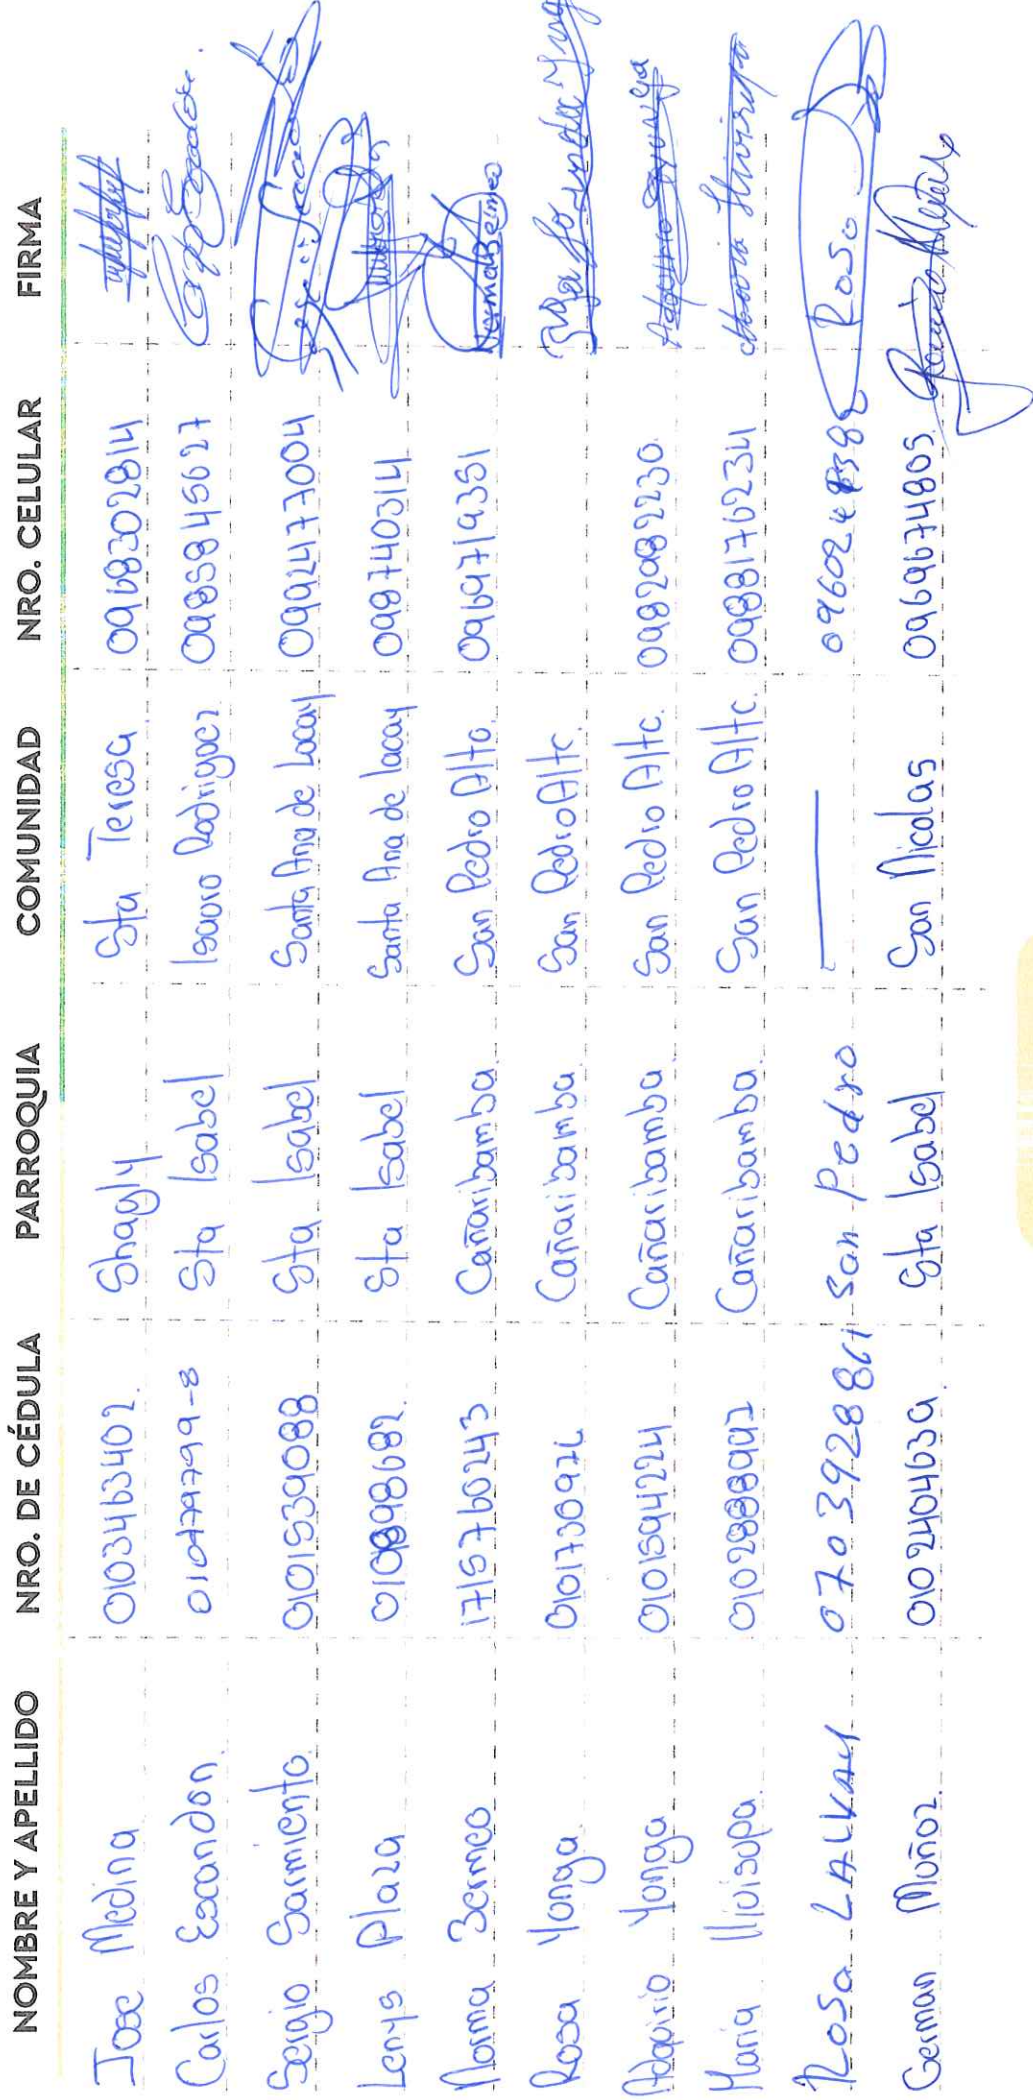 NOMBRE Y APELLIDO NRO. DE CÉDULA PARROQUIA COMUNIDAD NRO. CELULAR FIRMA
Jose Medina 0103463402 Shagly Sta Teresa 0968302814
Carlos Escandon 010479799-8 Sta Isabel Isauro Rodriguez 0985845627
Sergio Sarmiento 0101539088 Sta Isabel Santa Ana de Lacay 0992477004
Lenys Plaza 0108984682 Sta Isabel Santa Ana de lacay 0987740314
Norma Bermeo 1715760243 Cañaribamba San Pedro Alto 0969719351 Norma Bermeo
Rosa Yonga Cañaribamba San Pedro Alto
Adapirio Yonga 0101594224 Cañaribamba San Pedro Alto 0982982230
Maria 0102888992 Cañaribamba San Pedro Alto 0988176234
Rosa San Pedro — Rosa
German Muñoz 0102404639 Sta Isabel San Nicolas 0969674805